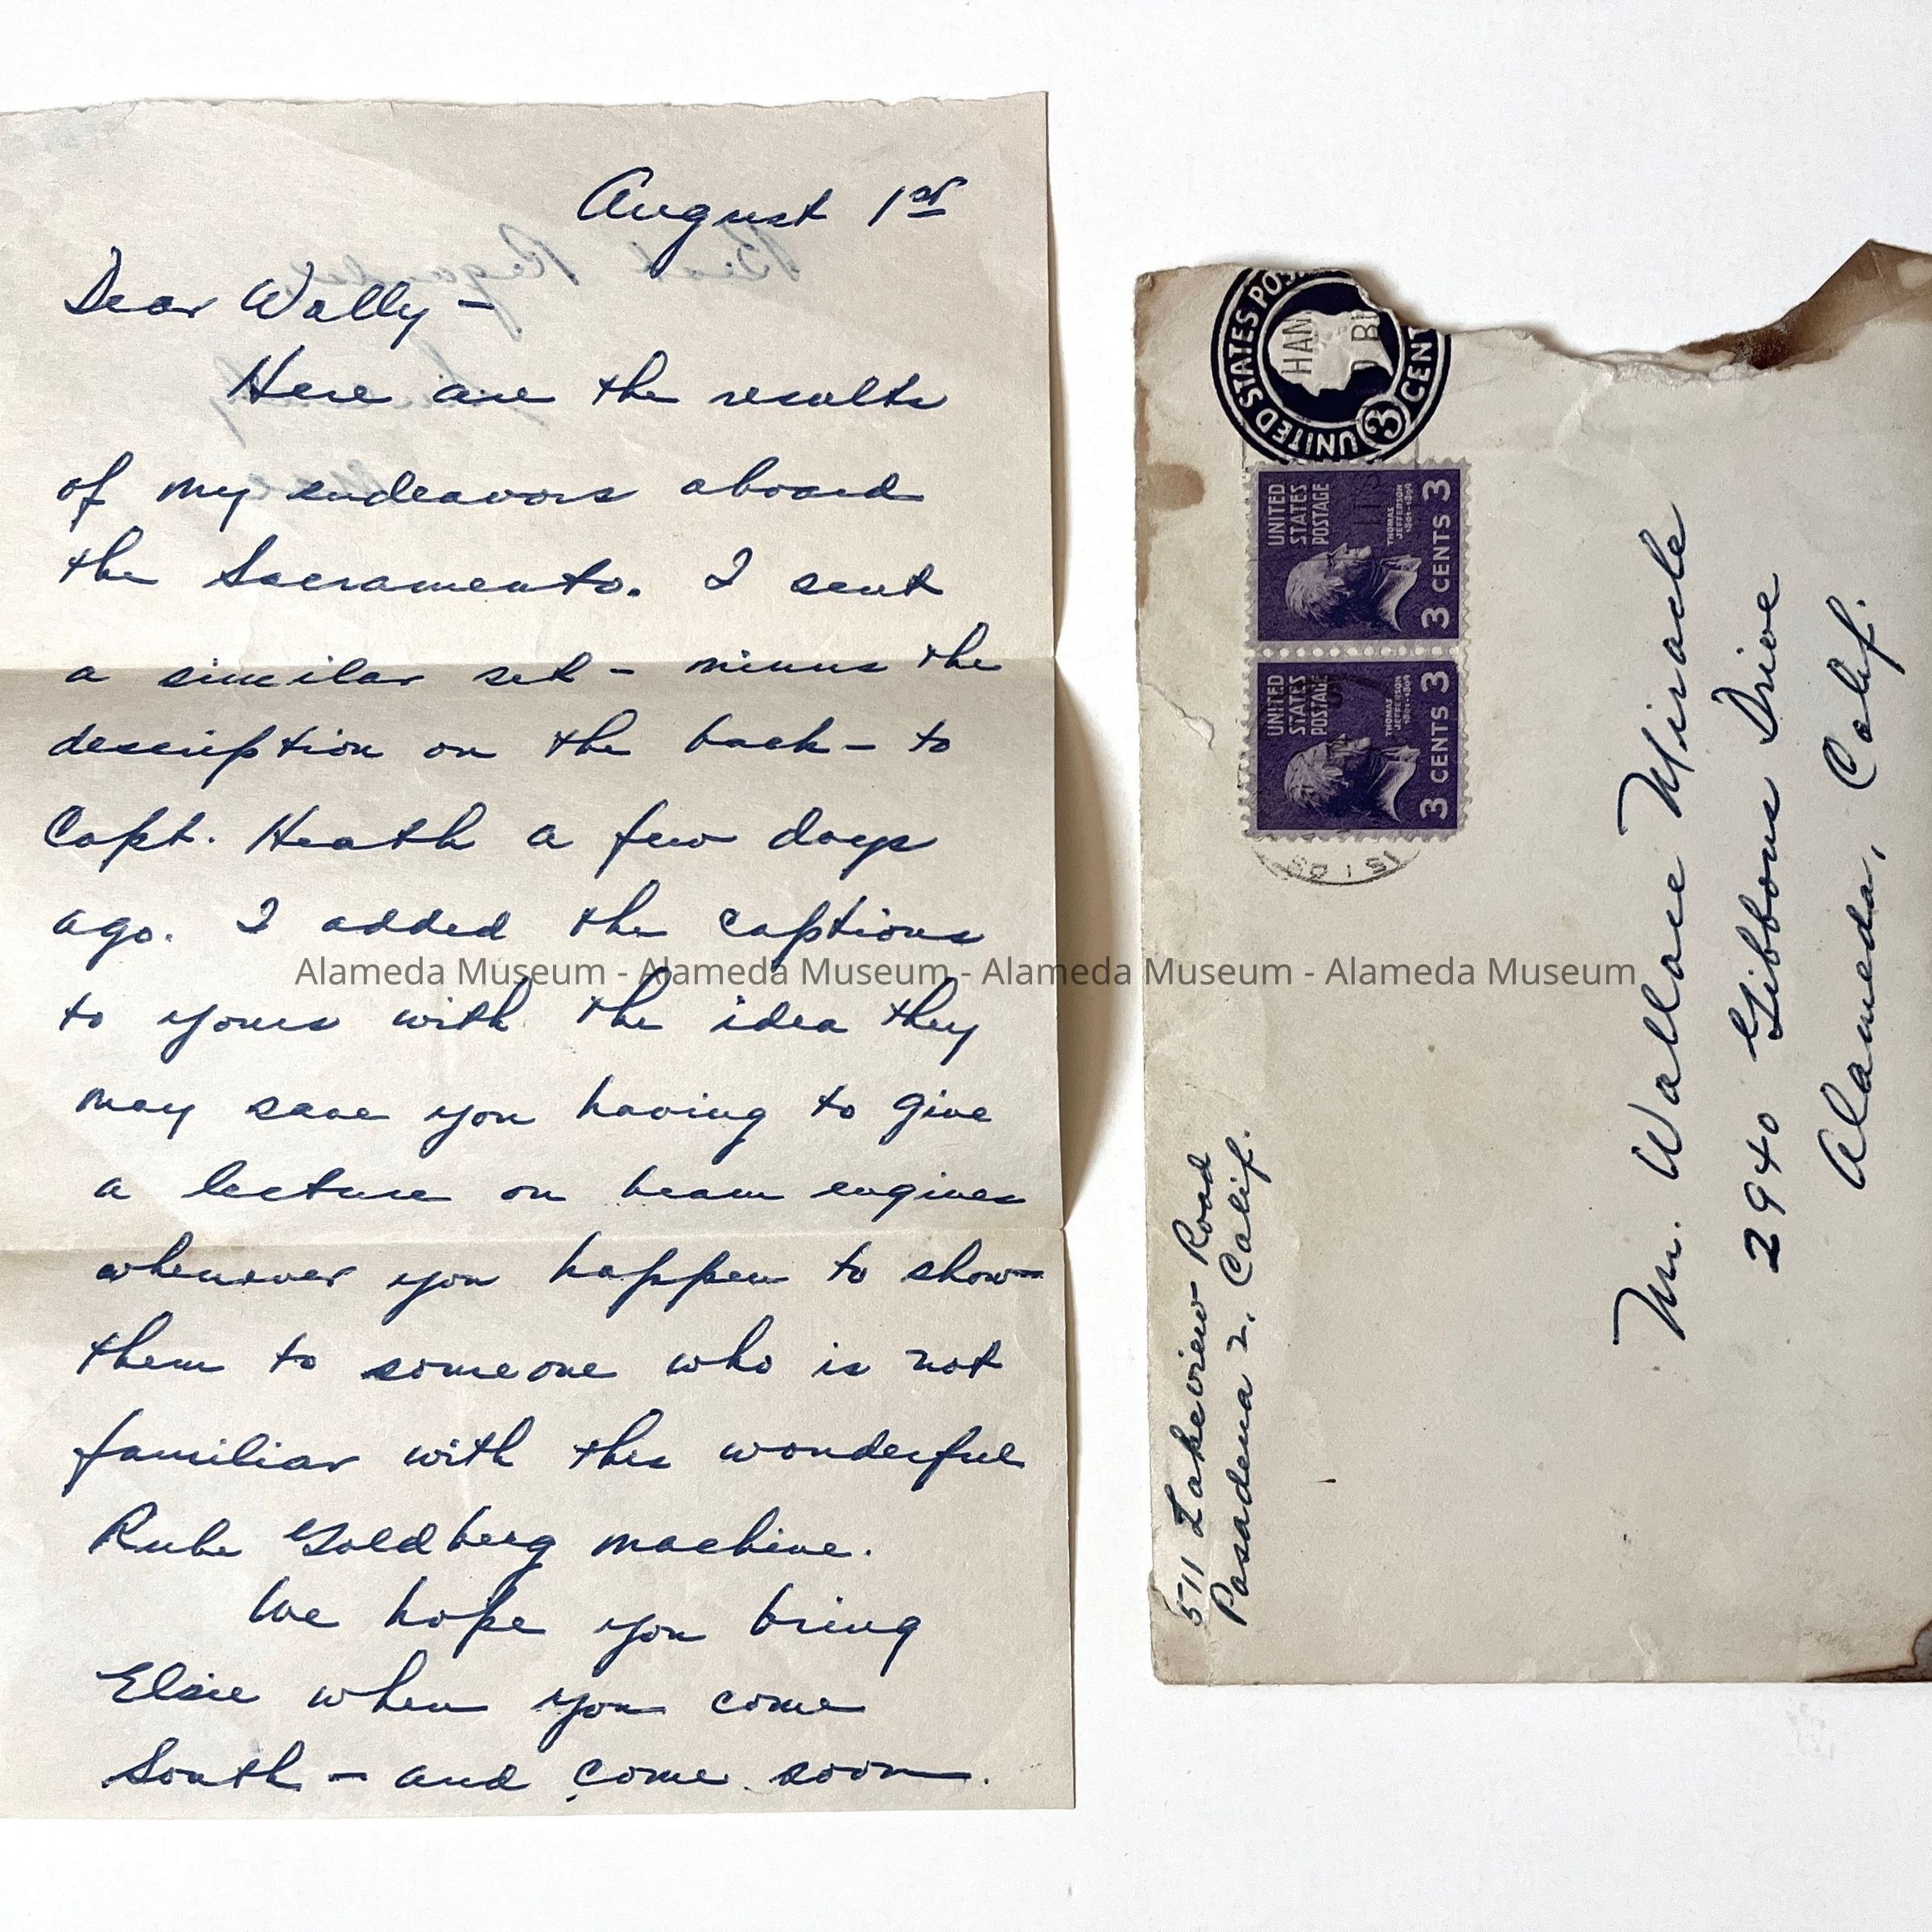 August 1st
Dear Wally –
Here are the results
of my endeavors aboard
the Sacramento. I sent
a similar set – minus the
description on the back – to
Capt. Heath a few days
ago. I added the captions
to yours with the idea they
may save you having to give
a lecture on beam engines
whenever you happen to show
them to someone who is not
familiar with this wonderful
Rube Goldberg machine.
We hope you bring
Elsie when you come
South – and come soon.
Best Regards,
Alameda Museum - Alameda Museum - Alameda Museum - Alameda Museum
511 Lakeview Road
Pasadena 2, Calif.
UNITED STATES
3 CENT
HAN
UNITED
STATES
POSTAGE
THOMAS
JEFFERSON
1801-1809
3 CENTS 3
UNITED
STATES
POSTAGE
THOMAS
JEFFERSON
1801-1809
3 CENTS 3
Mr. Wallace Miracle
2940 Gibbons Drive
Alameda, Calif.